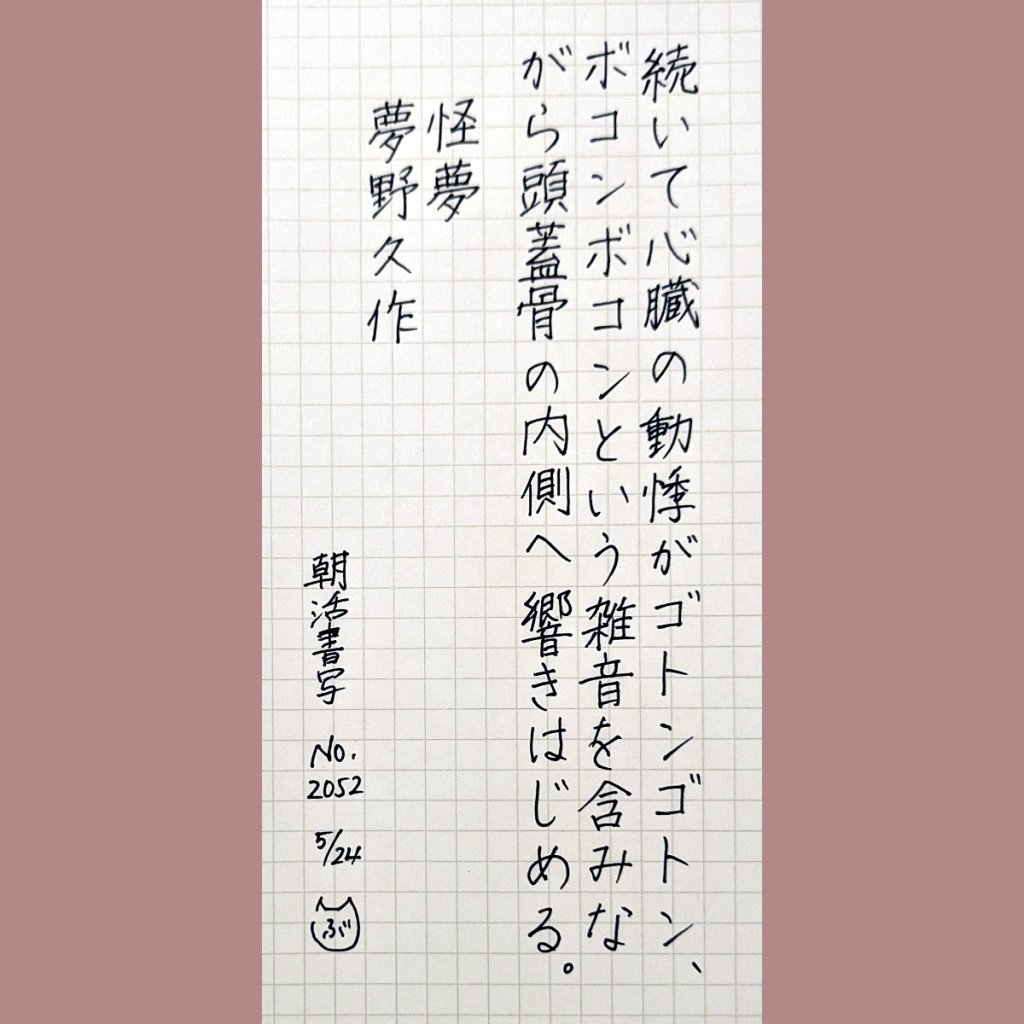 続いて心臓の動悸がゴトンゴトン、
ボコンボコンという雑音を含みな
がら頭蓋骨の内側へ響きはじめる。
怪夢
夢野久作
朝活書写 No. 2052 5/24
ぶ